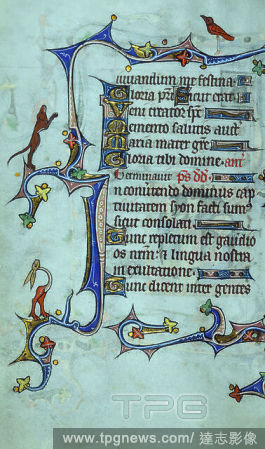 iuuandum me festina
Gloria pri Sicut erat
Veni creator spc
Memento salutis auct
Maria mater gre
Gloria tibi domine. ant
Germinauit ps dd
n conuertendo dominus cap
tiuitatem syon facti sum
sicut consolati
Tunc repletum est gaudio
os nrm: et lingua nostra
in exultatione
Tunc dicent inter gentes
TPG
www.tpgnews.com/達志影像